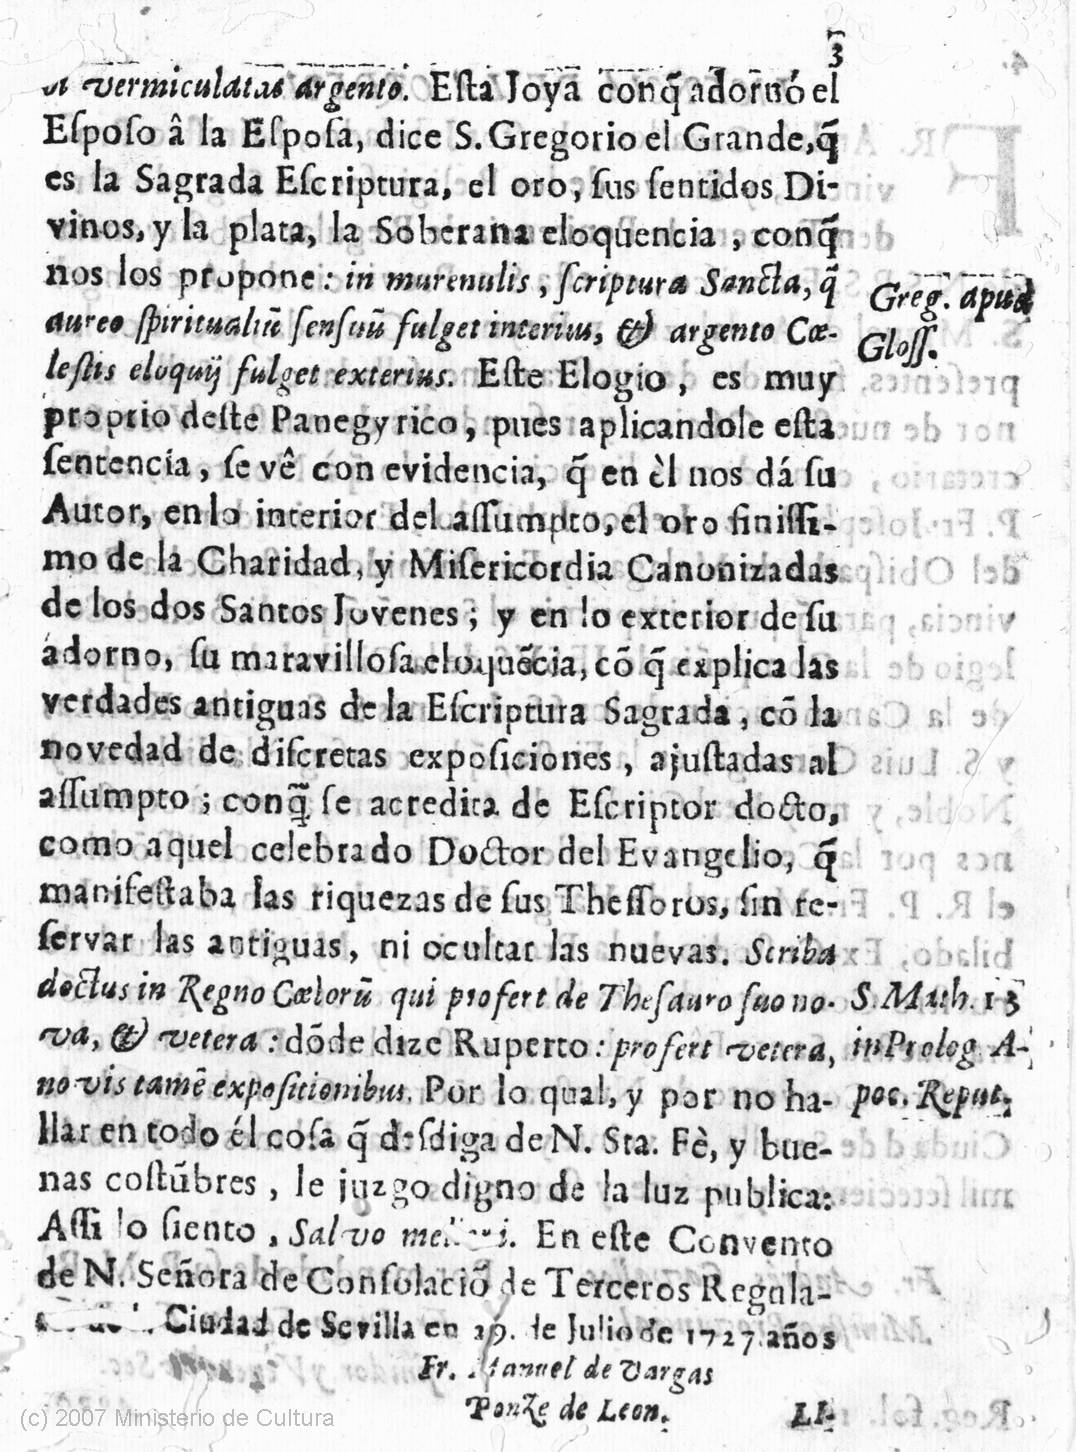 3
vermiculatas argento. Esta Joya conq̃ adornó el
Esposo â la Esposa, dice S. Gregorio el Grande, q̃
es la Sagrada Escriptura, el oro, sus sentidos Di-
vinos, y la plata, la Soberana eloquencia, conq̃
nos los propone: in murenulis, scriptura Sancta, q̃
aureo spiritualiū sensuū fulget interius, & argento Cœ-
lestis eloquij fulget exterius. Este Elogio, es muy
proprio deste Panegyrico, pues aplicandole esta
sentencia, se vê con evidencia, q̃ en èl nos dá su
Autor, en lo interior del assumpto, el oro finissi-
mo de la Charidad, y Misericordia Canonizadas
de los dos Santos Jovenes; y en lo exterior de su
adorno, su maravillosa eloquẽcia, cõ q̃ explica las
verdades antiguas de la Escriptura Sagrada, cõ la
novedad de discretas exposiciones, ajustadas al
assumpto; conq̃ se acredita de Escriptor docto,
como aquel celebrado Doctor del Evangelio, q̃
manifestaba las riquezas de sus Thessoros, sin re-
servar las antiguas, ni ocultar las nuevas. Scriba
doctus in Regno Cœlorū qui profert de Thesauro suo no-
va, & vetera: dõde dize Ruperto: profert vetera,
novis tamẽ expositionibus. Por lo qual, y por no ha-
llar en todo él cosa q̃ desdiga de N. Sta. Fè, y bue-
nas costũbres, le juzgo digno de la luz publica:
Assi lo siento, Salvo En este Convento
de N. Señora de Consolaciõ de Terceros Regula-
Ciudad de Sevilla en 29. de Julio de 1727. años
Fr. Manuel de Vargas
Ponze de Leon.
LI-
Greg. apud
Gloss.
S. Math. 13
in Prolog. A-
poc. Reput.
(c) 2007 Ministerio de Cultura